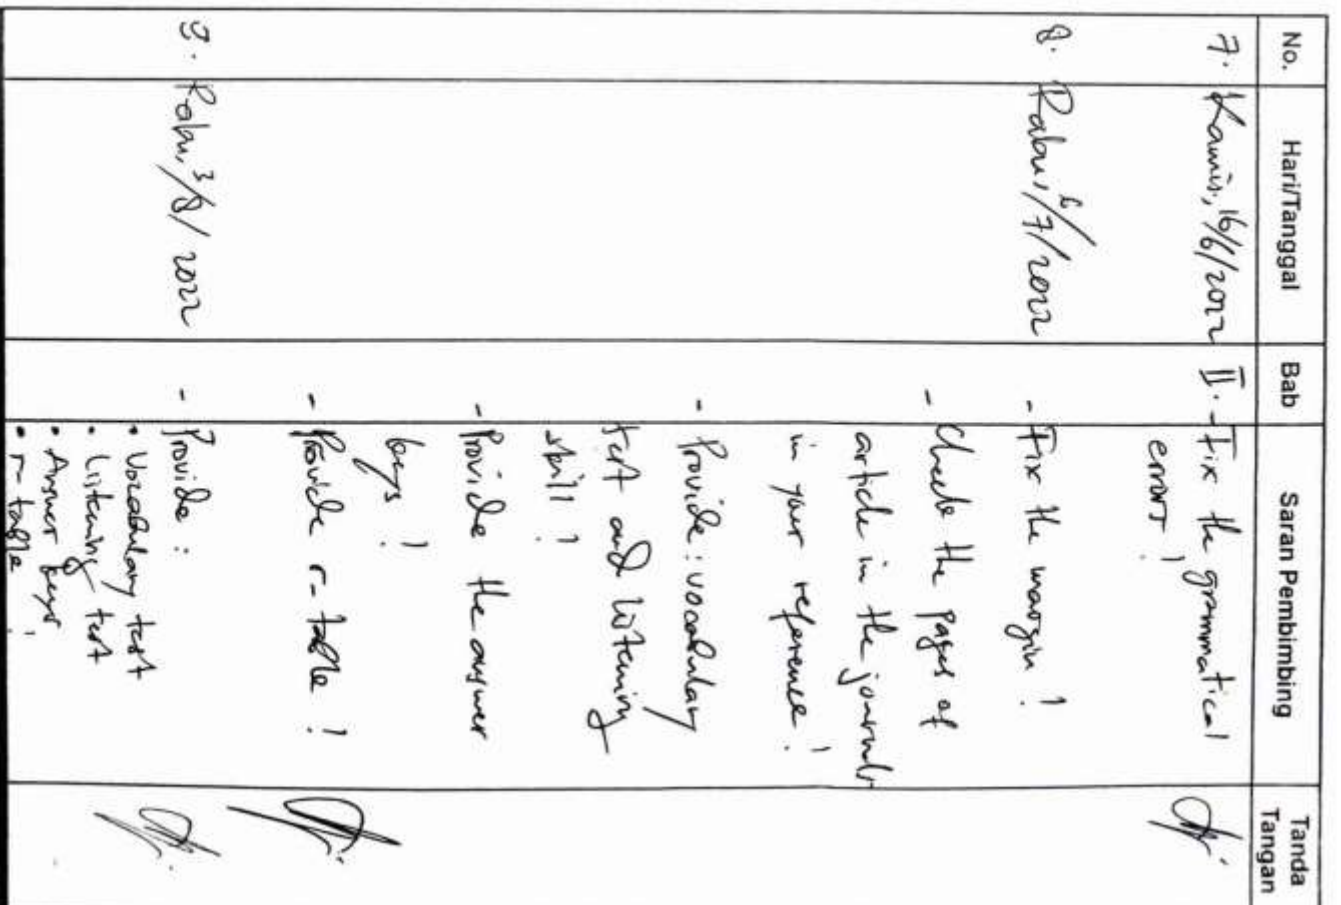 No. Hari/Tanggal Bab Saran Pembimbing Tanda Tangan
7. Kamis, 16/6/2022 II. - Fix the grammatical
error !
8. Rabu, 6/7/2022 - Fix the margin !
- Check the pages of
article in the journals
in your reference !
- Provide : vocabulary
test and listening
skill !
- Provide the answer
keys !
- Provide r-table !
9. Rabu, 3/8/2022 - Provide :
• Vocabulary test
• Listening test
• Answer keys
• r-table !